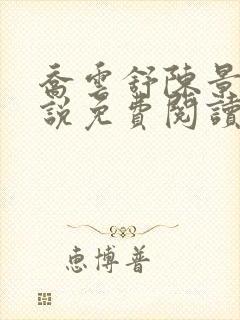 喬雲舒陳景
說免費閱讀
惠博普